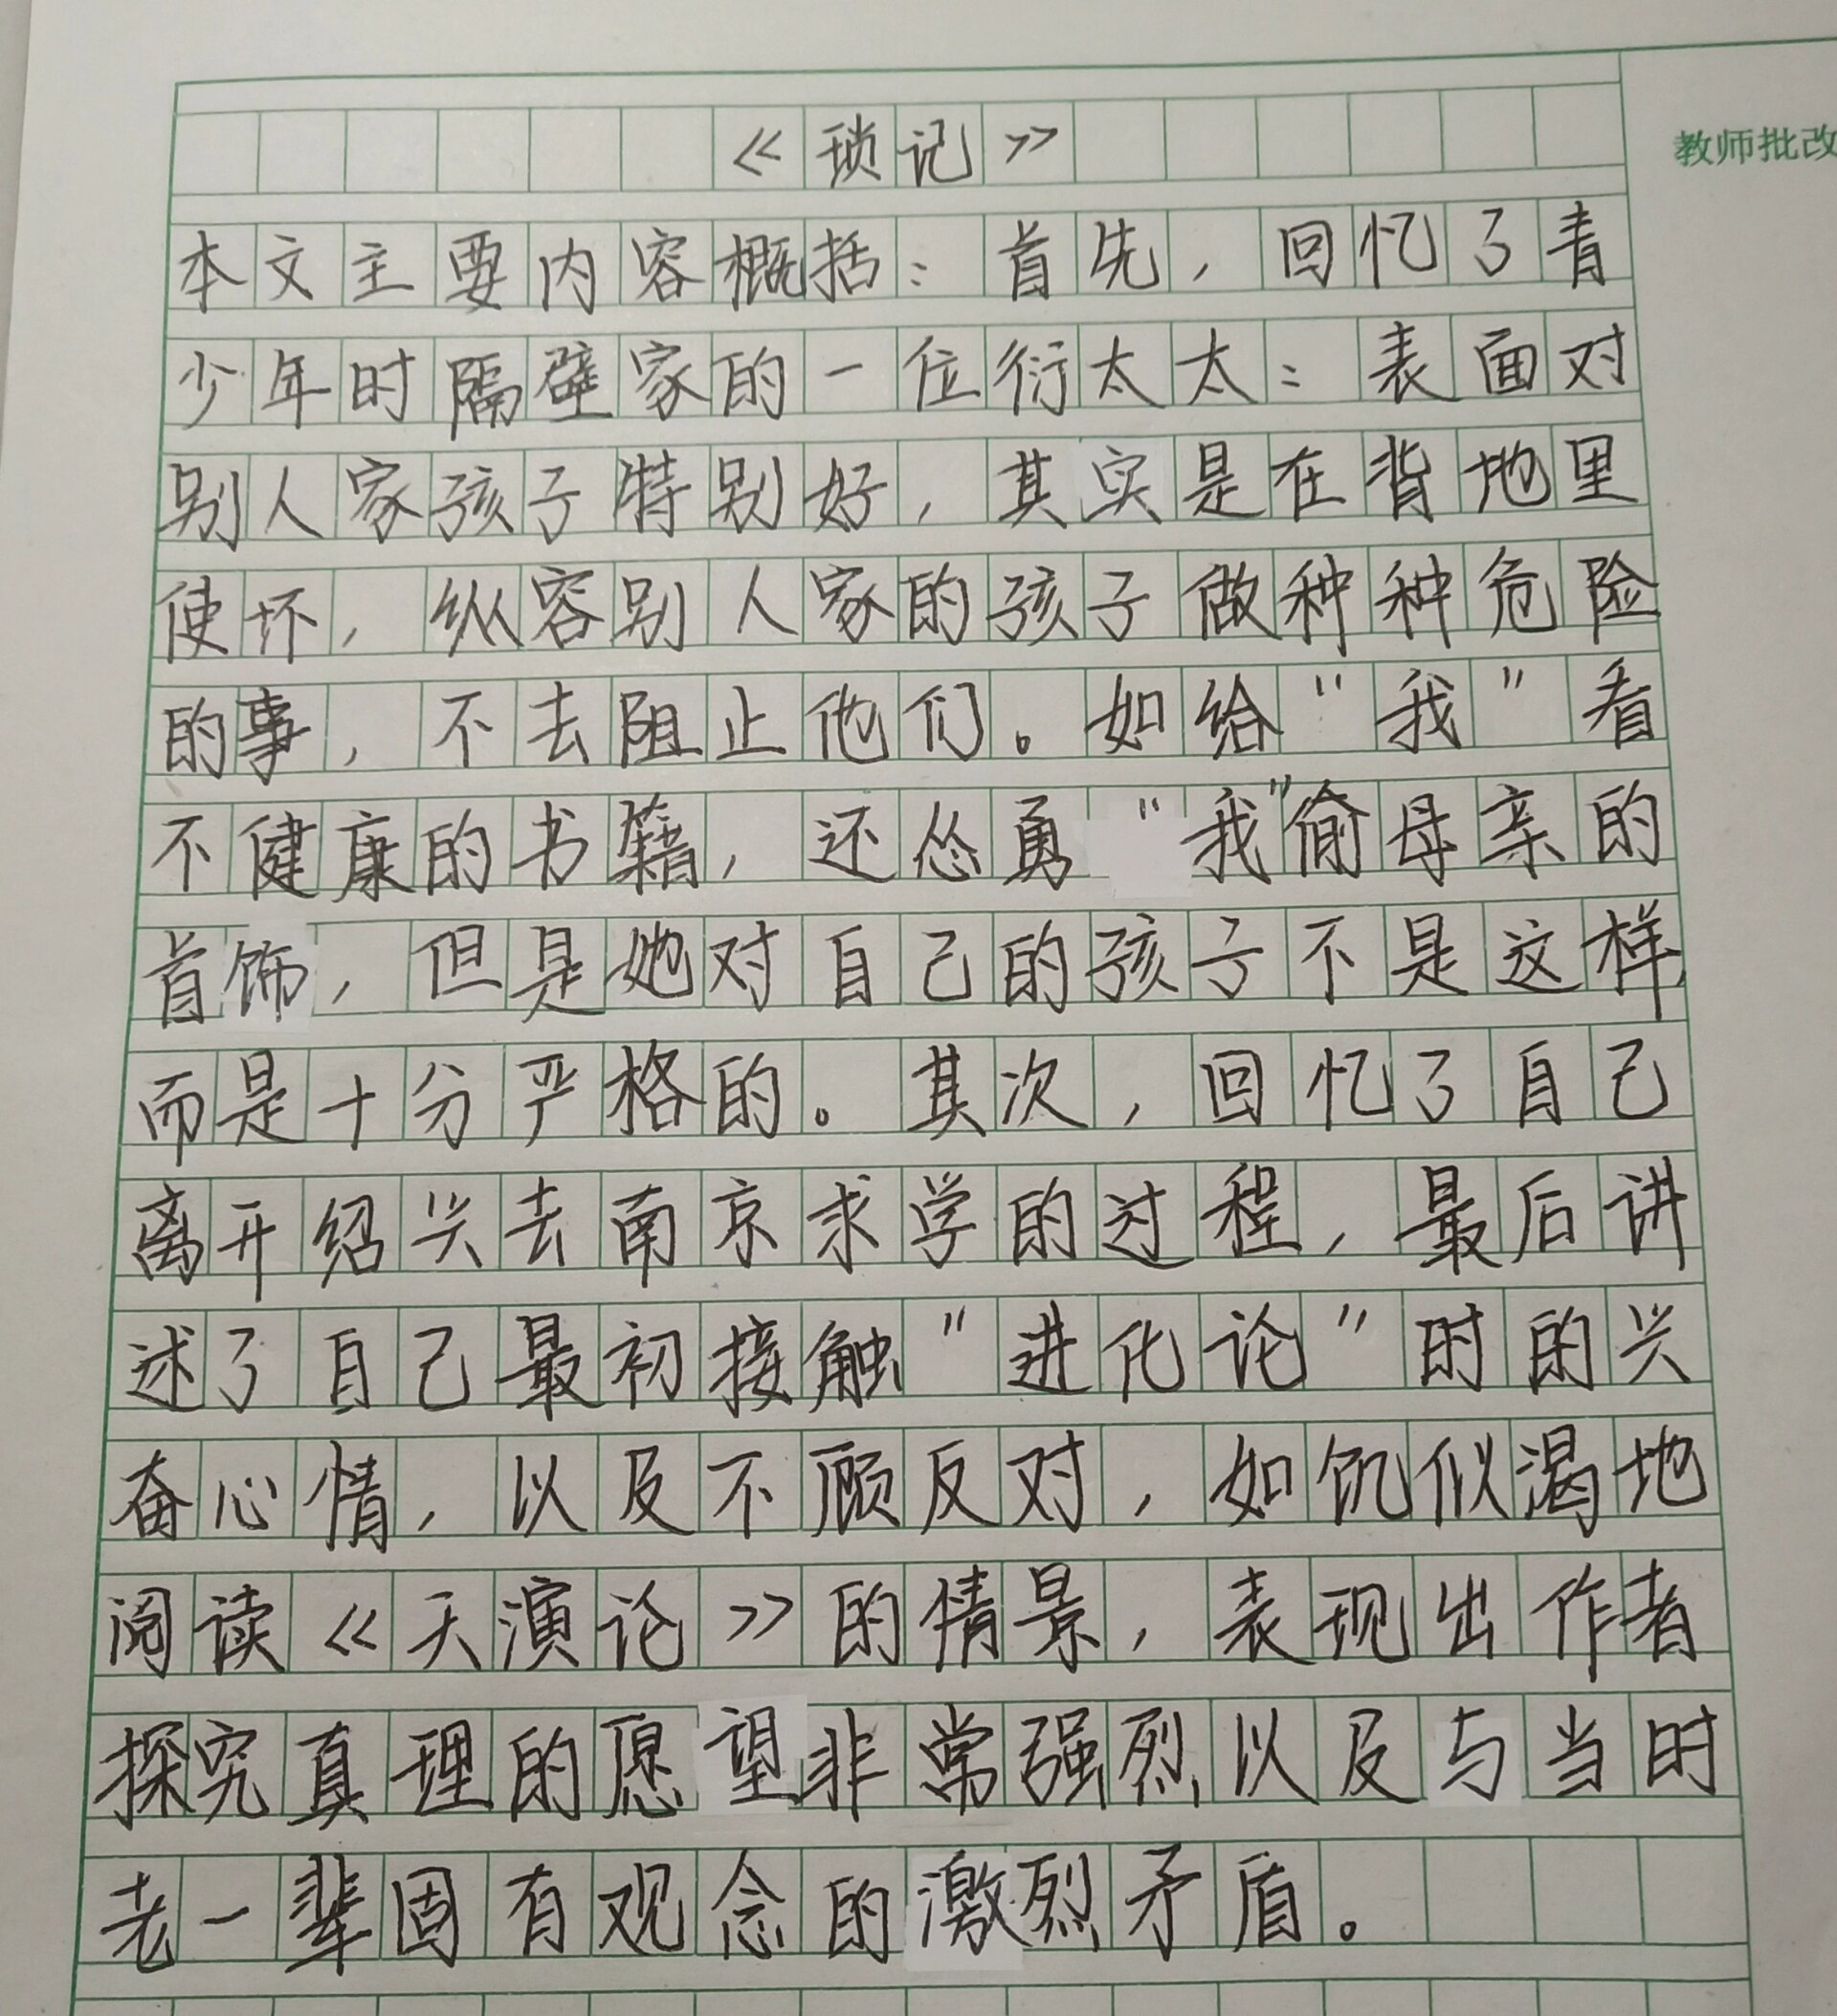 《琐记》
教师批改
本文主要内容概括：首先，回忆了青
少年时隔壁家的一位衍太太：表面对
别人家孩子特别好，其实是在背地里
使坏，纵容别人家的孩子做种种危险
的事，不去阻止他们。如给"我"看
不健康的书籍，还怂勇"我"偷母亲的
首饰，但是她对自己的孩子不是这样，
而是十分严格的。其次，回忆了自己
离开绍兴去南京求学的过程，最后讲
述了自己最初接触"进化论"时的兴
奋心情，以及不顾反对，如饥似渴地
阅读《天演论》的情景，表现出作者
探究真理的愿望非常强烈以及与当时
老一辈固有观念的激烈矛盾。